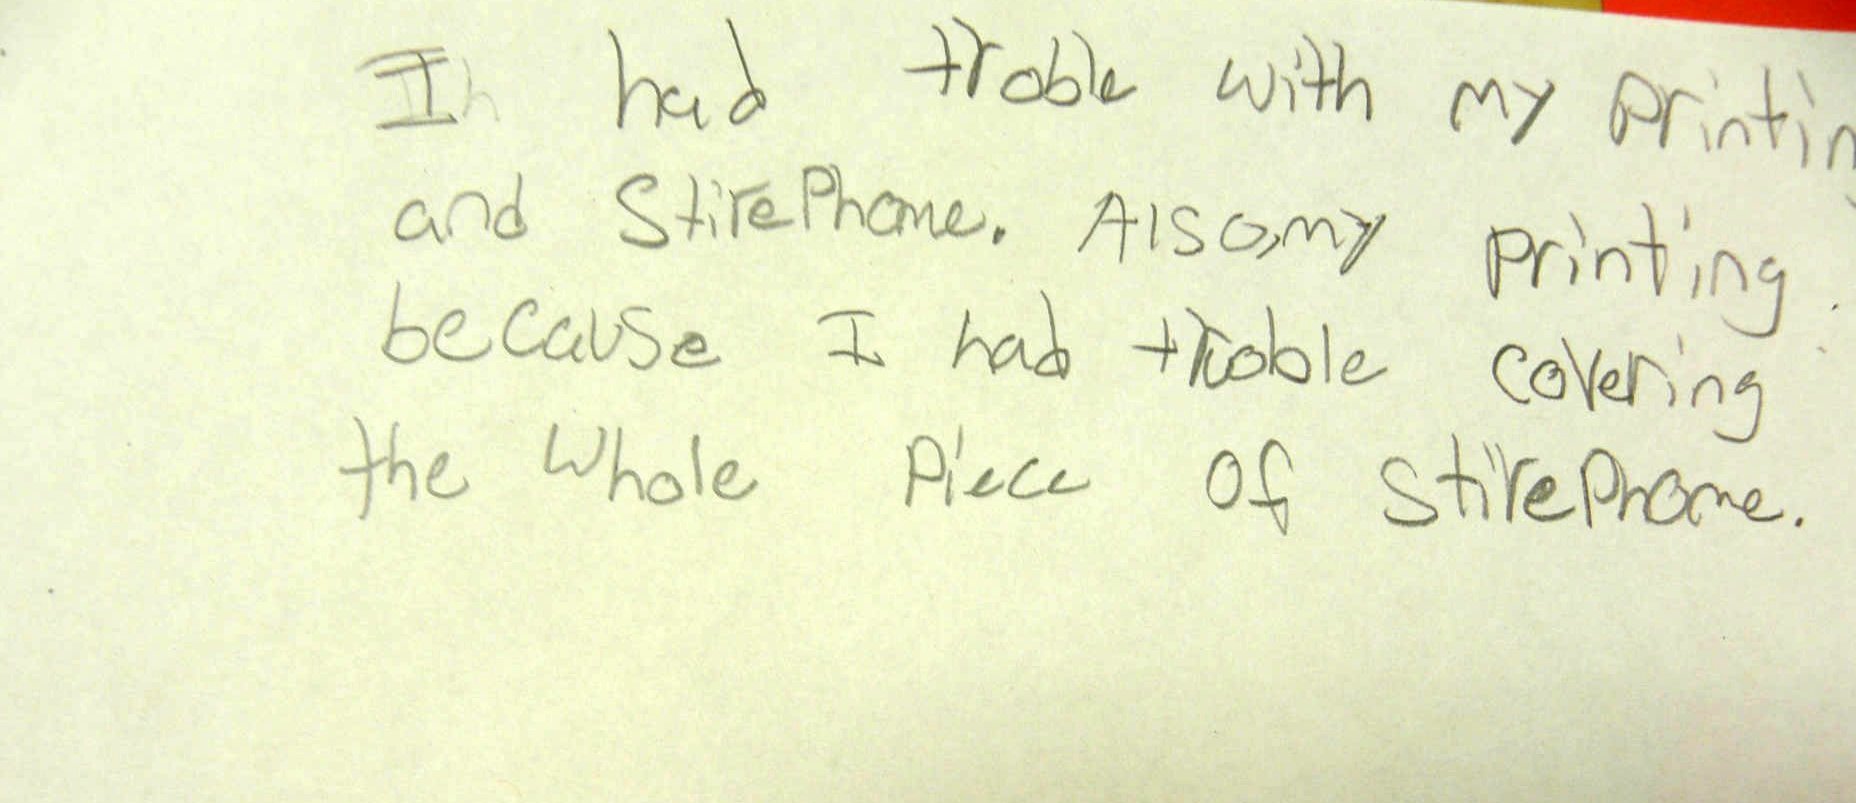 I had troble with my printin
and StirePhome. Also,my printing
because I had troble covering
the whole Piece of StirePhome.